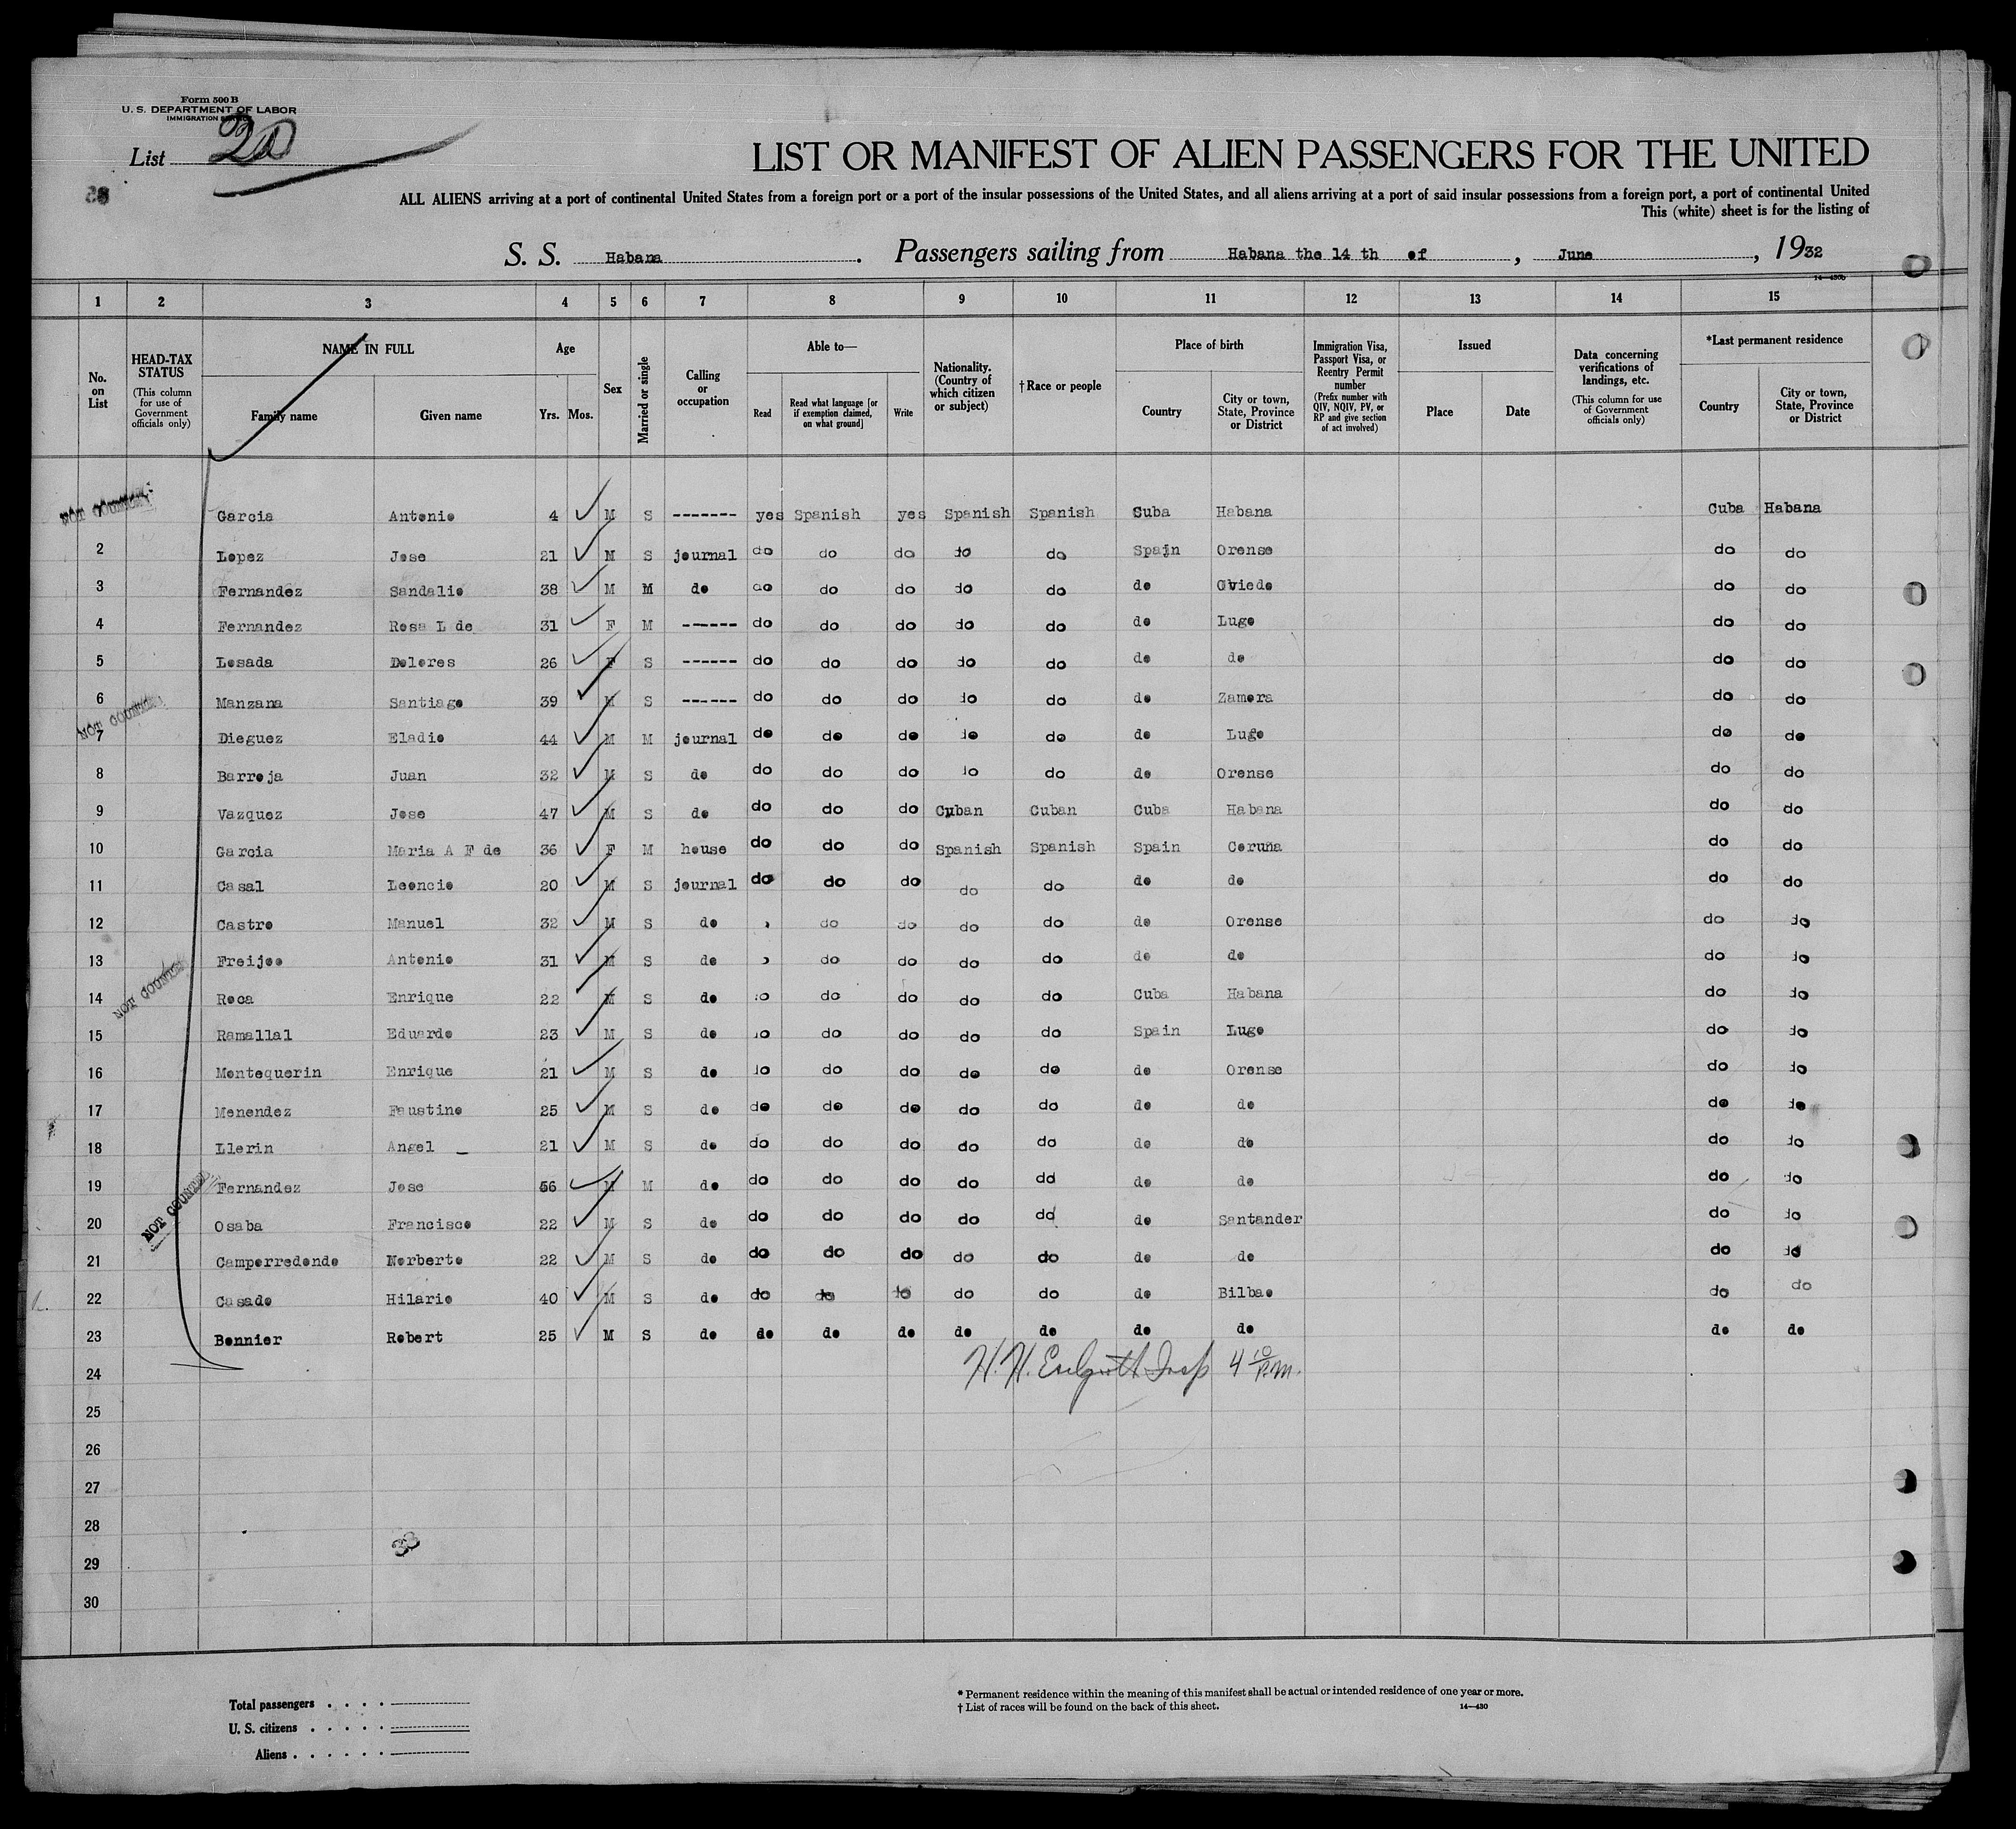 Form 500 B
U. S. DEPARTMENT OF LABOR
IMMIGRATION SERVICE
List 20
LIST OR MANIFEST OF ALIEN PASSENGERS FOR THE UNITED
ALL ALIENS arriving at a port of continental United States from a foreign port or a port of the insular possessions of the United States, and all aliens arriving at a port of said insular possessions from a foreign port, a port of continental United
This (white) sheet is for the listing of
S. S. Habana. Passengers sailing from Habana the 14 th of, June, 1932
14—430b
1 2 3 4 5 6 7 8 9 10 11 12 13 14 15
No. on List
HEAD-TAX STATUS (This column for use of Government officials only)
NAME IN FULL
Family name Given name
Age
Yrs. Mos.
Sex
Married or single
Calling or occupation
Able to—
Read Read what language [or if exemption claimed, on what ground] Write
Nationality. (Country of which citizen or subject)
†Race or people
Place of birth
Country City or town, State, Province or District
Immigration Visa, Passport Visa, or Reentry Permit number (Prefix number with QIV, NQIV, PV, or RP and give section of act involved)
Issued
Place Date
Data concerning verifications of landings, etc. (This column for use of Government officials only)
*Last permanent residence
Country City or town, State, Province or District
NOT COUNTED
1 Garcia Antonio 4 M S ------- yes Spanish yes Spanish Spanish Cuba Habana Cuba Habana
2 Lopez Jose 21 M S journal do do do do do Spain Orense do do
3 Fernandez Sandalio 38 M M do do do do do do do Oviedo do do
4 Fernandez Rosa L de 31 F M ------ do do do do do do Lugo do do
5 Losada Dolores 26 F S ------ do do do do do do do do do
6 Manzana Santiago 39 M S ------ do do do do do do Zamora do do
NOT COUNTED
7 Dieguez Eladio 44 M M journal do do do do do do Lugo do do
8 Barreja Juan 32 M S do do do do do do do Orense do do
9 Vazquez Jose 47 M S do do do do Cuban Cuban Cuba Habana do do
10 Garcia Maria A F de 36 F M house do do do Spanish Spanish Spain Coruña do do
11 Casal Leoncio 20 M S journal do do do do do do do do do
12 Castro Manuel 32 M S do do do do do do Orense do do
13 Freijoo Antonio 31 M S do do do do do do do do do
NOT COUNTED
14 Roca Enrique 22 M S do do do do do do Cuba Habana do do
15 Ramallal Eduardo 23 M S do do do do do do Spain Lugo do do
16 Montequerin Enrique 21 M S do do do do do do do Orense do do
17 Menendez Faustino 25 M S do do do do do do do do do do
18 Llerin Angel _ 21 M S do do do do do do do do do do
19 Fernandez Jose 56 M M do do do do do do do do do do
NOT COUNTED
20 Osaba Francisco 22 M S do do do do do do do Santander do do
21 Camperredondo Norberto 22 M S do do do do do do do do do do
22 Casado Hilario 40 M S do do do do do do do Bilbao do do
23 Bonnier Robert 25 M S do do do do do do do do do do
24 4 10 P.M.
25
26
27
28
29
30
Total passengers . . . .
U. S. citizens . . . . .
Aliens . . . . . .
* Permanent residence within the meaning of this manifest shall be actual or intended residence of one year or more.
† List of races will be found on the back of this sheet. 14—430